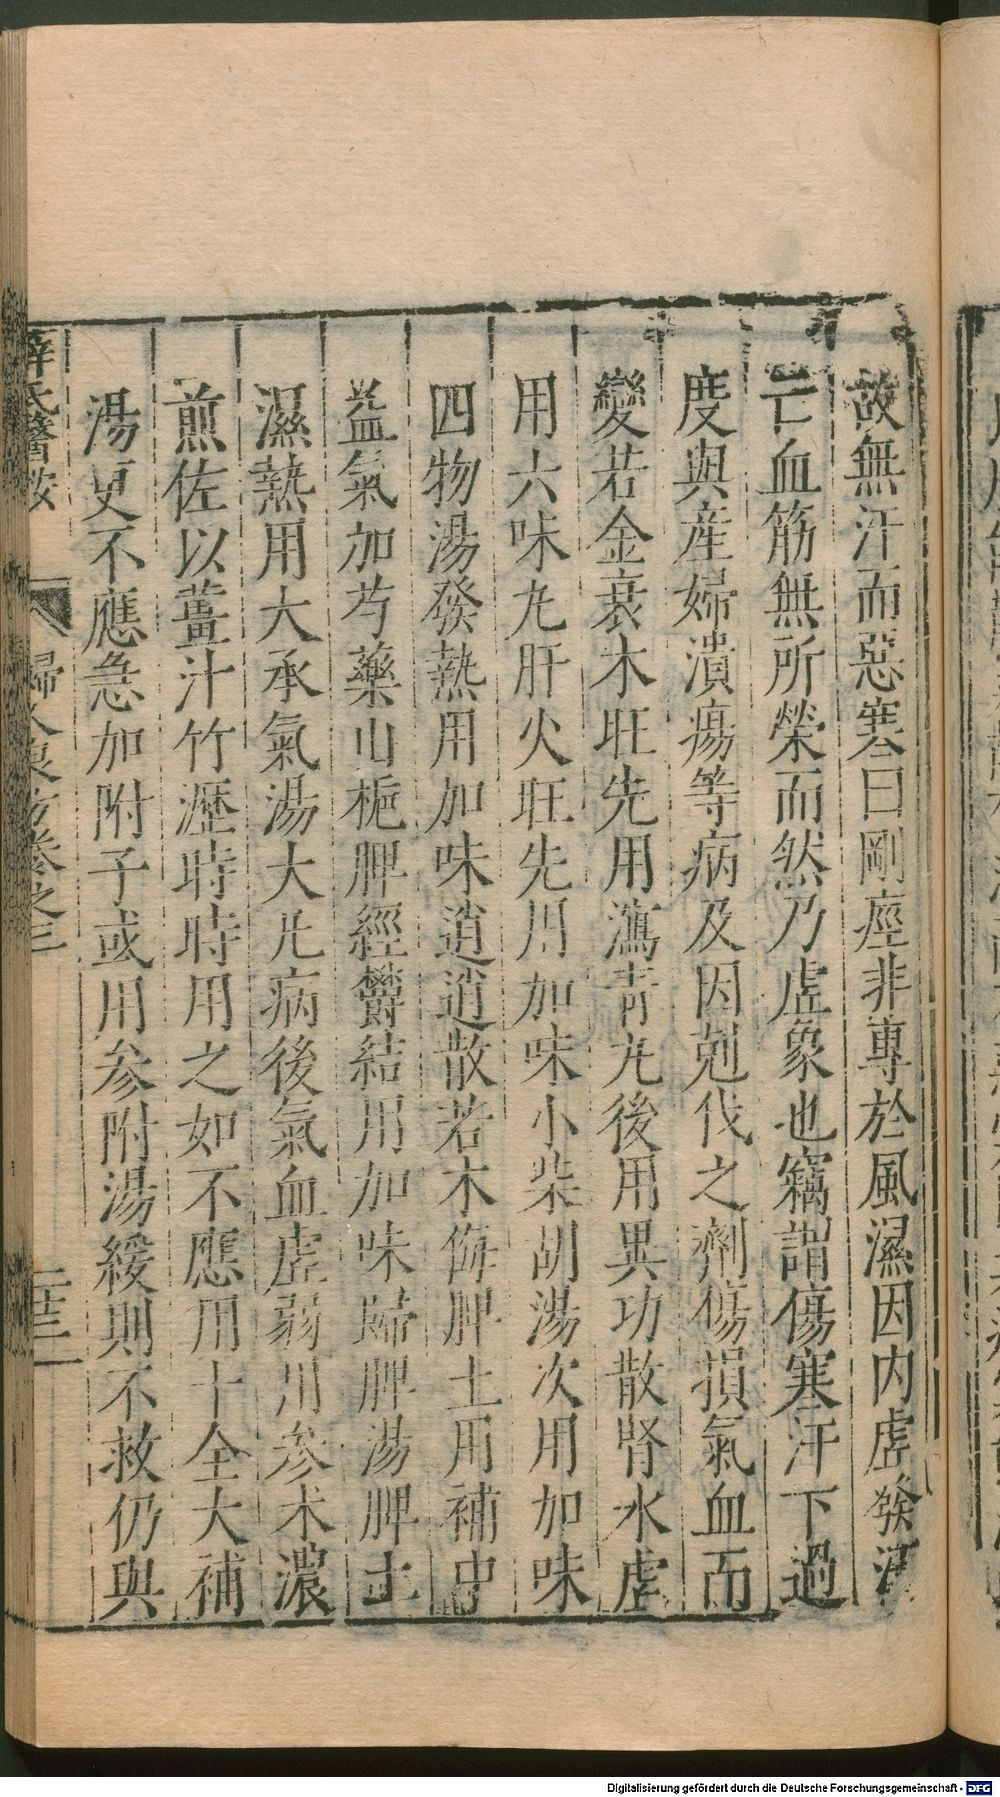 故無汗而惡寒曰剛痙非專於風濕因内虛發汗
亡血筋無所榮而然乃虛象也竊謂傷寒汗下過
度與産婦潰瘍等病及因剋伐之劑傷損氣血而
變若金衰木旺先用瀉靑丸後用異功散腎水虛
用六味丸肝火旺先用加味小柴胡湯次用加味
四物湯發熱用加味逍遙散若木侮脾土用補中
益氣加芍藥山梔脾經鬱結用加味歸脾湯脾土
濕熱用大承氣湯大凡病後氣血虛弱用參术濃
煎佐以薑汁竹瀝時時用之如不應用十全大補
湯更不應急加附子或用參附湯緩則不救仍與
薛氏醫按
婦人良方卷之三
二十三
Digitalisierung gefördert durch die Deutsche Forschungsgemeinschaft - DFG